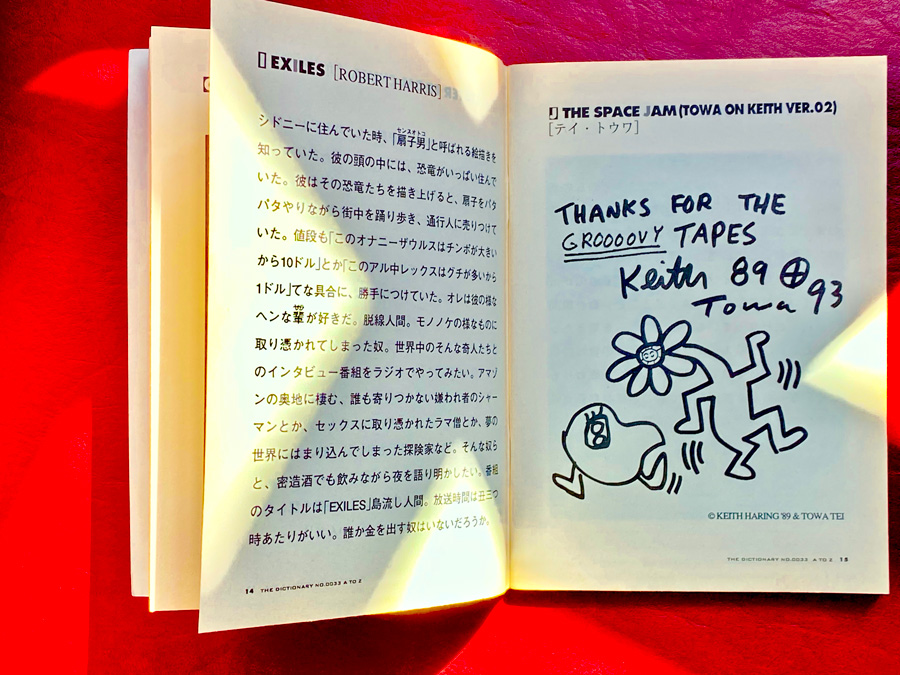 EXILES [ROBERT HARRIS]
シドニーに住んでいた時、「扇子男」と呼ばれる絵描きを
センスオトコ
知っていた。彼の頭の中には、恐竜がいっぱい住んで
いた。彼はその恐竜たちを描き上げると、扇子をパタ
パタやりながら街中を踊り歩き、通行人に売りつけて
いた。値段も「このオナニーザウルスはチンポが大きい
から10ドル」とか「このアル中レックスはグチが多いから
1ドル」てな具合に、勝手につけていた。オレは彼の様な
ヘンな輩が好きだ。脱線人間。モノノケの様なものに
やから
取り憑かれてしまった奴。世界中のそんな奇人たちと
のインタビュー番組をラジオでやってみたい。アマゾ
ンの奥地に棲む、誰も寄りつかない嫌われ者のシャー
マンとか、セックスに取り憑かれたラマ僧とか、夢の
世界にはまり込んでしまった探険家など。そんな奴ら
と、密造酒でも飲みながら夜を語り明かしたい。番組
のタイトルは「EXILES」島流し人間。放送時間は丑三つ
時あたりがいい。誰か金を出す奴はいないだろうか。
14 THE DICTIONARY NO.0033 A TO Z
THE SPACE JAM (TOWA ON KEITH VER.02)
[テイ・トウワ]
THANKS FOR THE
GROOOOVY TAPES
Keith 89
Towa 93
© KEITH HARING '89 & TOWA TEI
THE DICTIONARY NO.0033 A TO Z 15